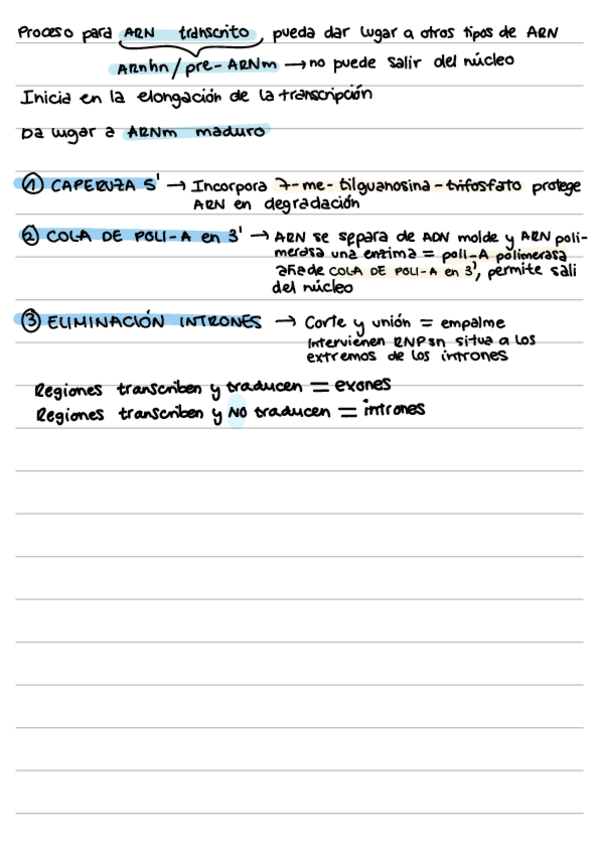 Proceso para ARN transcrito, pueda dar lugar a otros tipos de ARN
ARNhn / pre-ARNm → no puede salir del núcleo
Inicia en la elongación de la transcripción
Da lugar a ARNm maduro
① CAPERUZA 5' → Incorpora 7-me-tilguanosina-trifosfato protege
ARN en degradación
② COLA DE POLI-A en 3' → ARN se separa de ADN molde y ARN poli-
merasa una enzima = poli-A polimerasa
añade COLA DE POLI-A en 3', permite sali
del núcleo
③ ELIMINACIÓN INTRONES → Corte y unión = empalme
Intervienen RNPsn situa a los
extremos de los intrones
Regiones transcriben y traducen = exones
Regiones transcriben y NO traducen = intrones